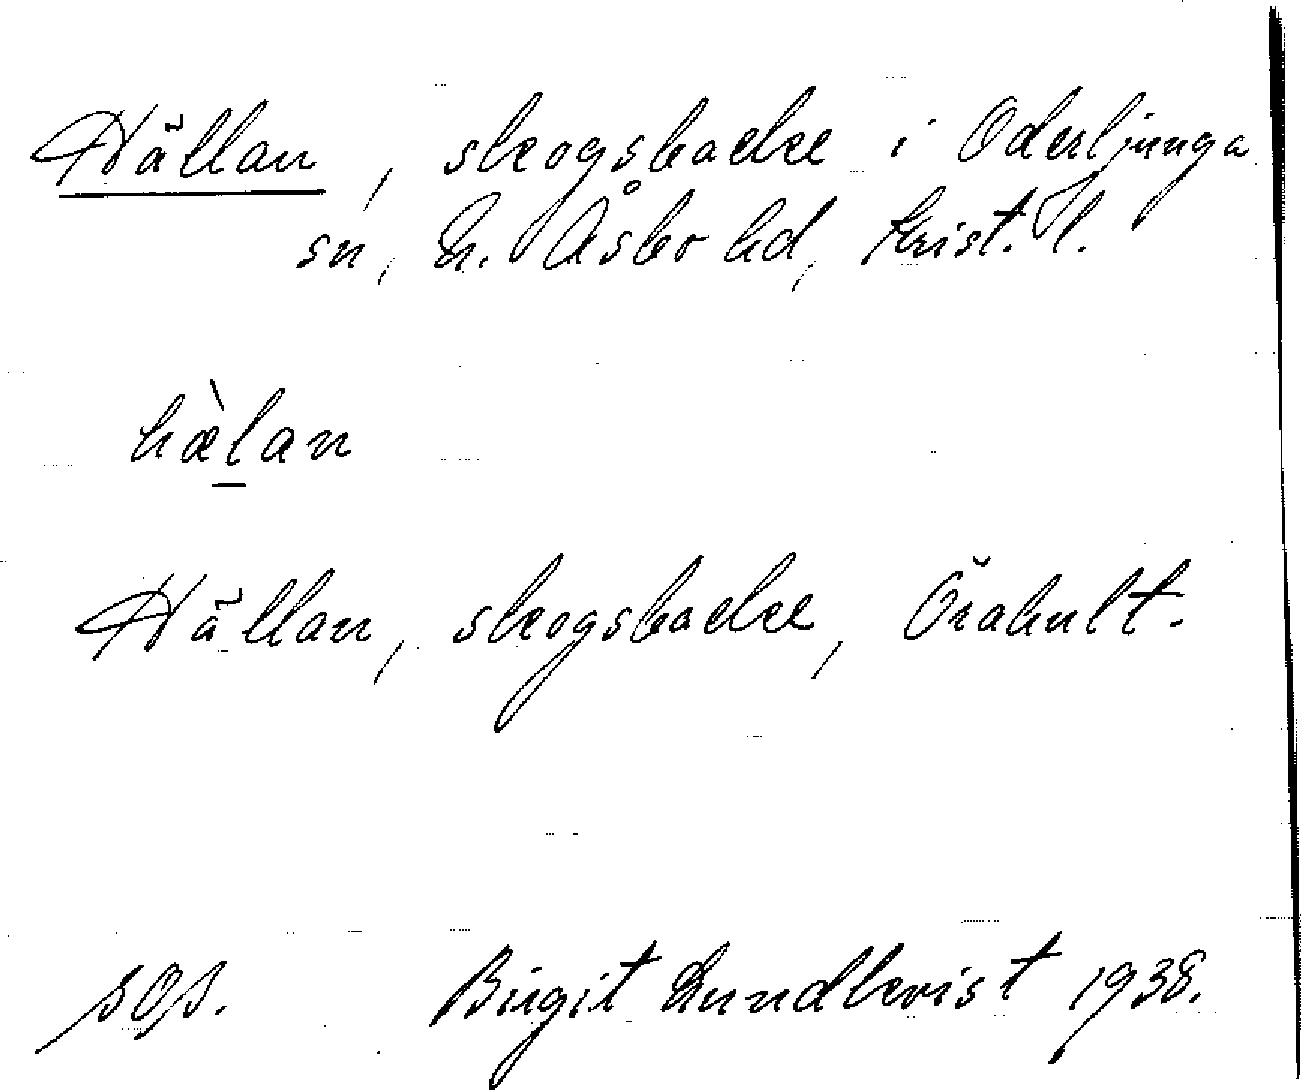 Hällan, skogsbacke i Oderljunga
sn, N. Åsbo hd, Krist. l.
hæ̀lan
Hällan, skogsbacke, Örahult.
sgs. Birgit Lundkvist 1938.